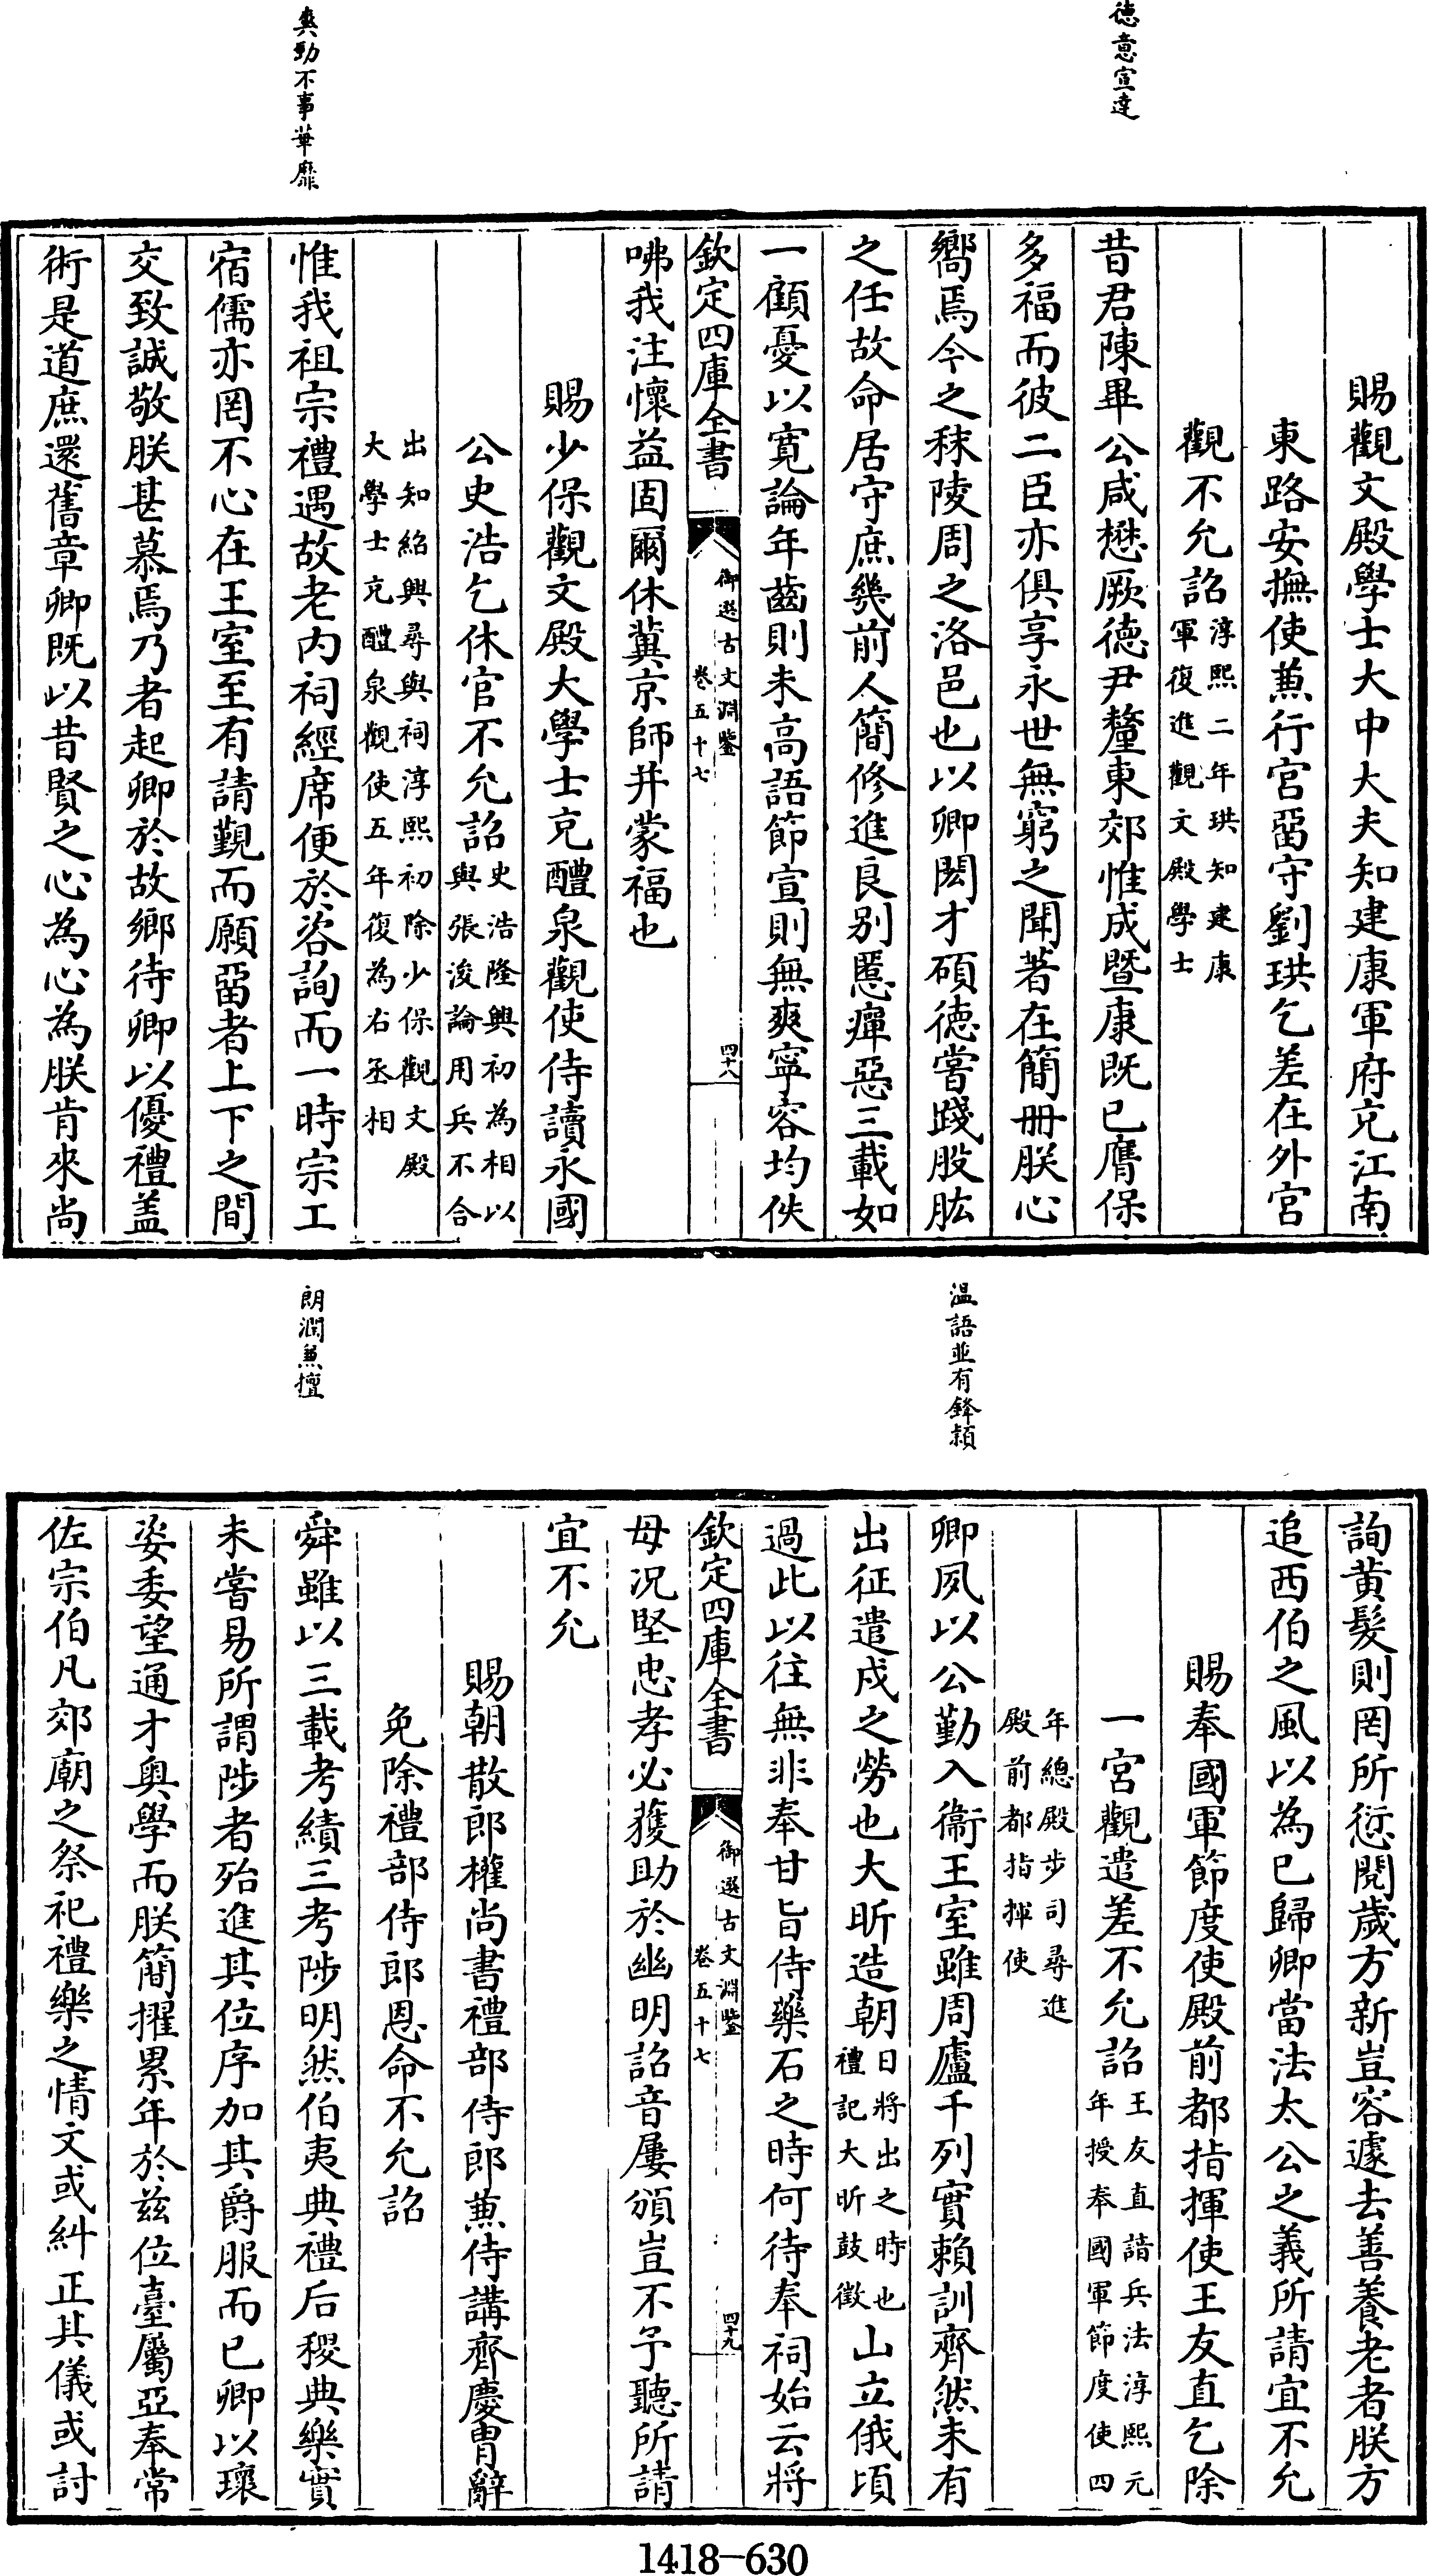 德意宣達
典勁不事華靡
賜觀文殿學士大中大夫知建康軍府充江南
東路安撫使兼行宮留守劉珙乞差在外宮
觀不允詔淳熙二年珙知建康
軍復進觀文殿學士
昔君陳畢公咸懋厥德尹釐東郊惟成暨康既已膺保
多福而彼二臣亦俱享永世無窮之聞著在簡冊朕心
嚮焉今之秣陵周之洛邑也以卿閎才碩德嘗踐股肱
之任故命居守庶幾前人簡修進良别慝癉惡三載如
一顧憂以寛論年齒則未高語節宣則無爽寧容均佚
欽定四庫全書
御選古文淵鑒
卷五十七
四十八
咈我注懷益固爾休冀京師并蒙福也
賜少保觀文殿大學士充醴泉觀使侍讀永國
公史浩乞休官不允詔史浩隆興初為相以
與張浚論用兵不合
出知紹興尋與祠淳熙初除少保觀文殿
大學士充醴泉觀使五年復為右丞相
惟我祖宗禮遇故老内祠經席便於咨詢而一時宗工
宿儒亦罔不心在王室至有請覲而願留者上下之間
交致誠敬朕甚慕焉乃者起卿於故鄉待卿以優禮盖
術是道庶還舊章卿既以昔賢之心為心為朕肯來尚
温語並有鋒穎
朗潤兼擅
詢黄髮則罔所愆閱歲方新豈容遽去善養老者朕方
追西伯之風以為已歸卿當法太公之義所請宜不允
賜奉國軍節度使殿前都指揮使王友直乞除
一宮觀遣差不允詔王友直諳兵法淳熙元
年授奉國軍節度使四
年總殿步司尋進
殿前都指揮使
卿夙以公勤入衛王室雖周廬千列實賴訓齊然未有
出征遣戍之勞也大昕造朝日將出之時也
禮記大昕鼓徵
山立俄頃
過此以往無非奉甘旨侍藥石之時何待奉祠始云將
欽定四庫全書
御選古文淵鑒
卷五十七
四十九
母况堅忠孝必獲助於幽明詔音屢頒豈不予聽所請
宜不允
賜朝散郎權尚書禮部侍郎兼侍講齊慶胄辭
免除禮部侍郎恩命不允詔
舜雖以三載考績三考陟明然伯夷典禮后稷典樂實
未嘗易所謂陟者殆進其位序加其爵服而已卿以瓌
姿委望通才奥學而朕簡擢累年於兹位臺屬亞奉常
佐宗伯凡郊廟之祭祀禮樂之情文或糾正其儀或討
1418-630